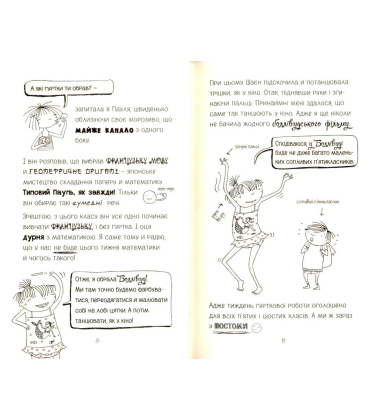 А які гуртки ти обрав? –
запитала я Пауля, швиденько
облизуючи своє морозиво, що
МАЙЖЕ КАПАЛО з одного
боку
І він розповів, що вибрав ФРАНЦУЗЬКУ МОВУ
й ГЕОМЕТРИЧНЕ ОРИГАМІ – японське
мистецтво складання паперу й математику
Типовий Пауль, як завжди! Тільки
він обирає такі кумедні речі.
Зрештою, з цього класу він усе одно починає
вивчати ФРАНЦУЗЬКУ, і без гуртка. І оця
дурня з математикою. Я саме тому й радію,
що у нас не буде цього тижня математики
й чогось такого!
Отже, я обрала Боллівуд!
Ми там точно будемо фарбува-
тися, переодягатися й малювати
собі на лобі цятки. А потім
танцювати, як у кіно!
При цьому Шаєн підскочила й потанцювала
трішки, як у кіно. Отак, піднявши руки й зги-
наючи пальці. Принаймні мені здалося, що
саме так танцюють у кіно. Адже я ще ніколи
не бачила жодного боллівудського фільму.
Сподіваюся, у Боллівуді
буде не дуже багато малень-
ких сопливих п'ятикласників.
Адже тиждень гурткової роботи оголошено
для всіх п'ятих і шостих класів. А ми ж зараз
у ШОСТОМУ